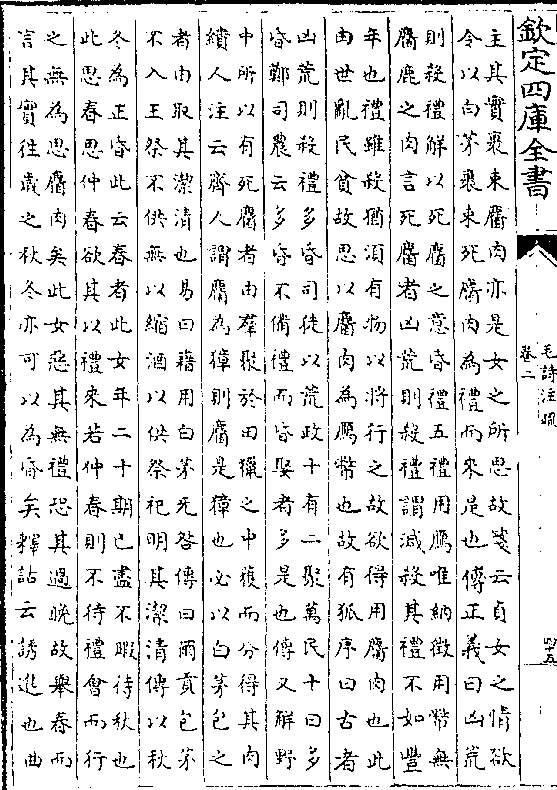 欽定四庫全書
毛詩注疏
卷二
四十五
主其實裹束麕肉亦是女之所思故箋云貞女之情欲
令以白茅裹束死麕肉為禮而來是也傳正義曰凶荒
則殺禮解以死麕之意昏禮五禮用鴈唯納徵用幣無
麕鹿之肉言死麕者凶荒則殺禮謂減殺其禮不如豐
年也禮雖殺猶須有物以將行之故欲得用麕肉也此
由世亂民貧故思以麕肉為鴈幣也故有狐序曰古者
凶荒則殺禮多昏司徒以荒政十有二聚萬民十曰多
昏鄭司農云多昏不備禮而昏娶者多是也傳又解野
中所以有死麕者由羣聚於田獵之中獲而分得其肉
繢人注云齊人謂麕為獐則麕是獐也必以白茅包之
者由取其潔清也易曰藉用白茅无咎傳曰爾貢包茅
不入王祭不供無以縮酒以供祭祀明其潔清傳以秋
冬為正昏此云春者此女年二十期已盡不暇待秋也
此思春思仲春欲其以禮來若仲春則不待禮會而行
之無為思麕肉矣此女惡其無禮恐其過晚故舉春而
言其實往歲之秋冬亦可以為昏矣釋詁云誘進也曲